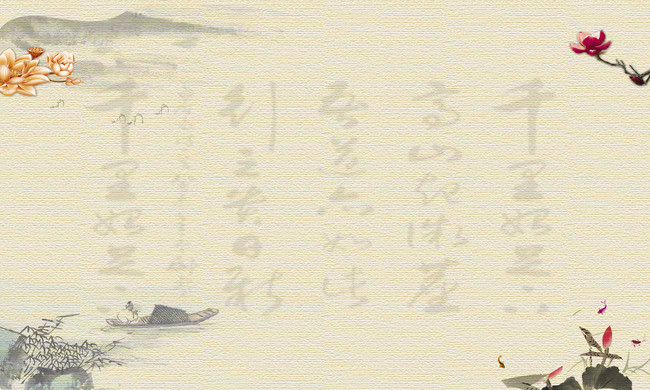 千里始足下
高山起微塵
吾道亦如此
行之貴日新
千里始足下